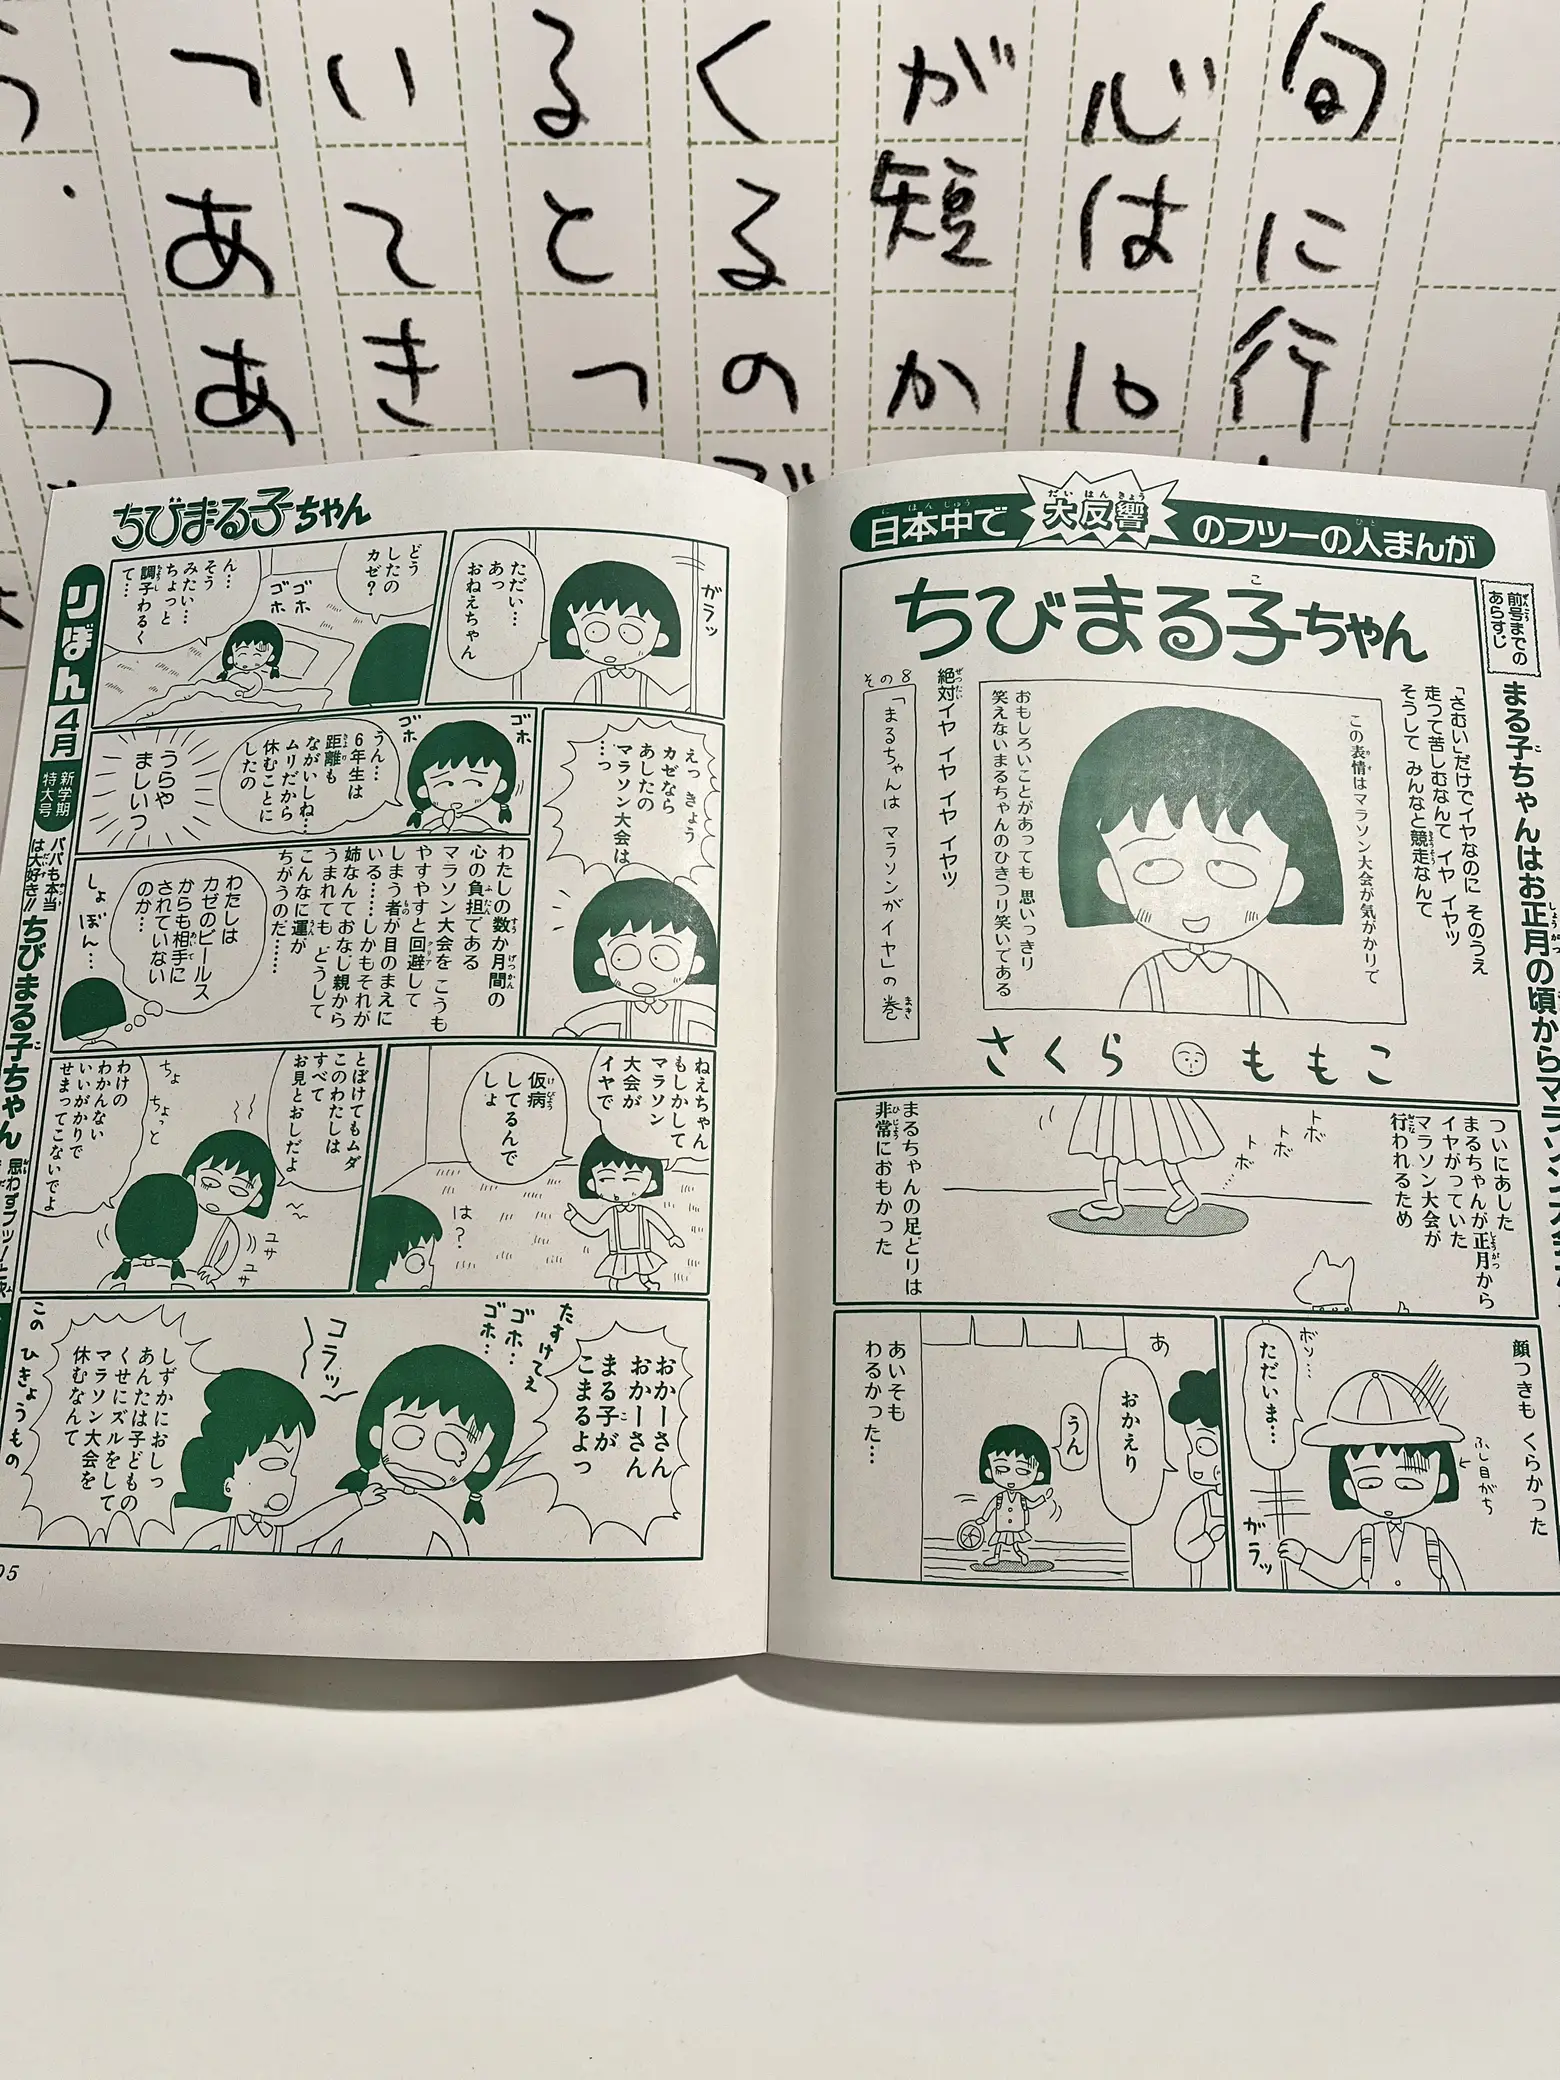 旬に行
心は10
が短か
くるので
るとっ
いてき
ってああ
つ
日本中で大反響のフツーの人まんが
ちびまる子ちゃん
前号までの
あらすじ
まる子ちゃんはお正月の頃からマラソン大会が
「さむい」だけでイヤなのに そのうえ
走って苦しむなんて イヤ イヤッ
そうして みんなと競走なんて
この表情はマラソン大会が気がかりで
おもしろいことがあっても 思いっきり
笑えないまるちゃんのひきつり笑いである
絶対イヤ イヤ イヤ イヤッ
その8
「まるちゃんは マラソンがイヤ」の巻
さくらももこ
ついにあした
まるちゃんが正月から
イヤがっていた
マラソン大会が
行われるため
トボ
トボ
トボ……
まるちゃんの足どりは
非常におもかった
顔つきも くらかった
ボソ…
ただいま…
ふし目がち
ガラッ
あ
おかえり
うん
あいそも
わるかった…
ちびまる子ちゃん
りぼん
4月
新学期
特大号
パパも本当
は大好き!!
ちびまる子ちゃん
思わずプッ!
ガラッ
ただい…
あっ
おねえちゃん
どう
したの
カゼ?
ゴホ
ゴホ
ん…
そう
みたい…
ちょっと
調子わるく
て…
えっ きょう
カゼなら
あしたの
マラソン大会は
…っ
ゴホ
ゴホ
うん…
6年生は
距離も
ながいしね…
ムリだから
休むことに
したの
うらや
ましいっ
わたしの数か月間の
心の負担である
マラソン大会を こうも
やすやすと回避して
しまう者が目のまえに
いる……しかもそれが
姉なんておなじ親から
うまれても どうして
こんなに運が
ちがうのだ……
わたしは
カゼのビールス
からも相手に
されていない
のか…
しょぼん…
ねえちゃん
もしかして
マラソン
大会が
イヤで
仮病
してるんで
しょ
は?
とぼけてもムダ
このわたしは
すべて
お見とおしだよ
ちょ
ちょっと
わけの
わかんない
いいがかりで
せまってこないでよ
ユサ
ユサ
おかーさん
おかーさん
まる子が
こまるよっ
たすけてぇ
ゴホ…
ゴホ…
コラッ
しずかにおしっ
あんたは子どもの
くせにズルをして
マラソン大会を
休むなんて
このひきょうもの